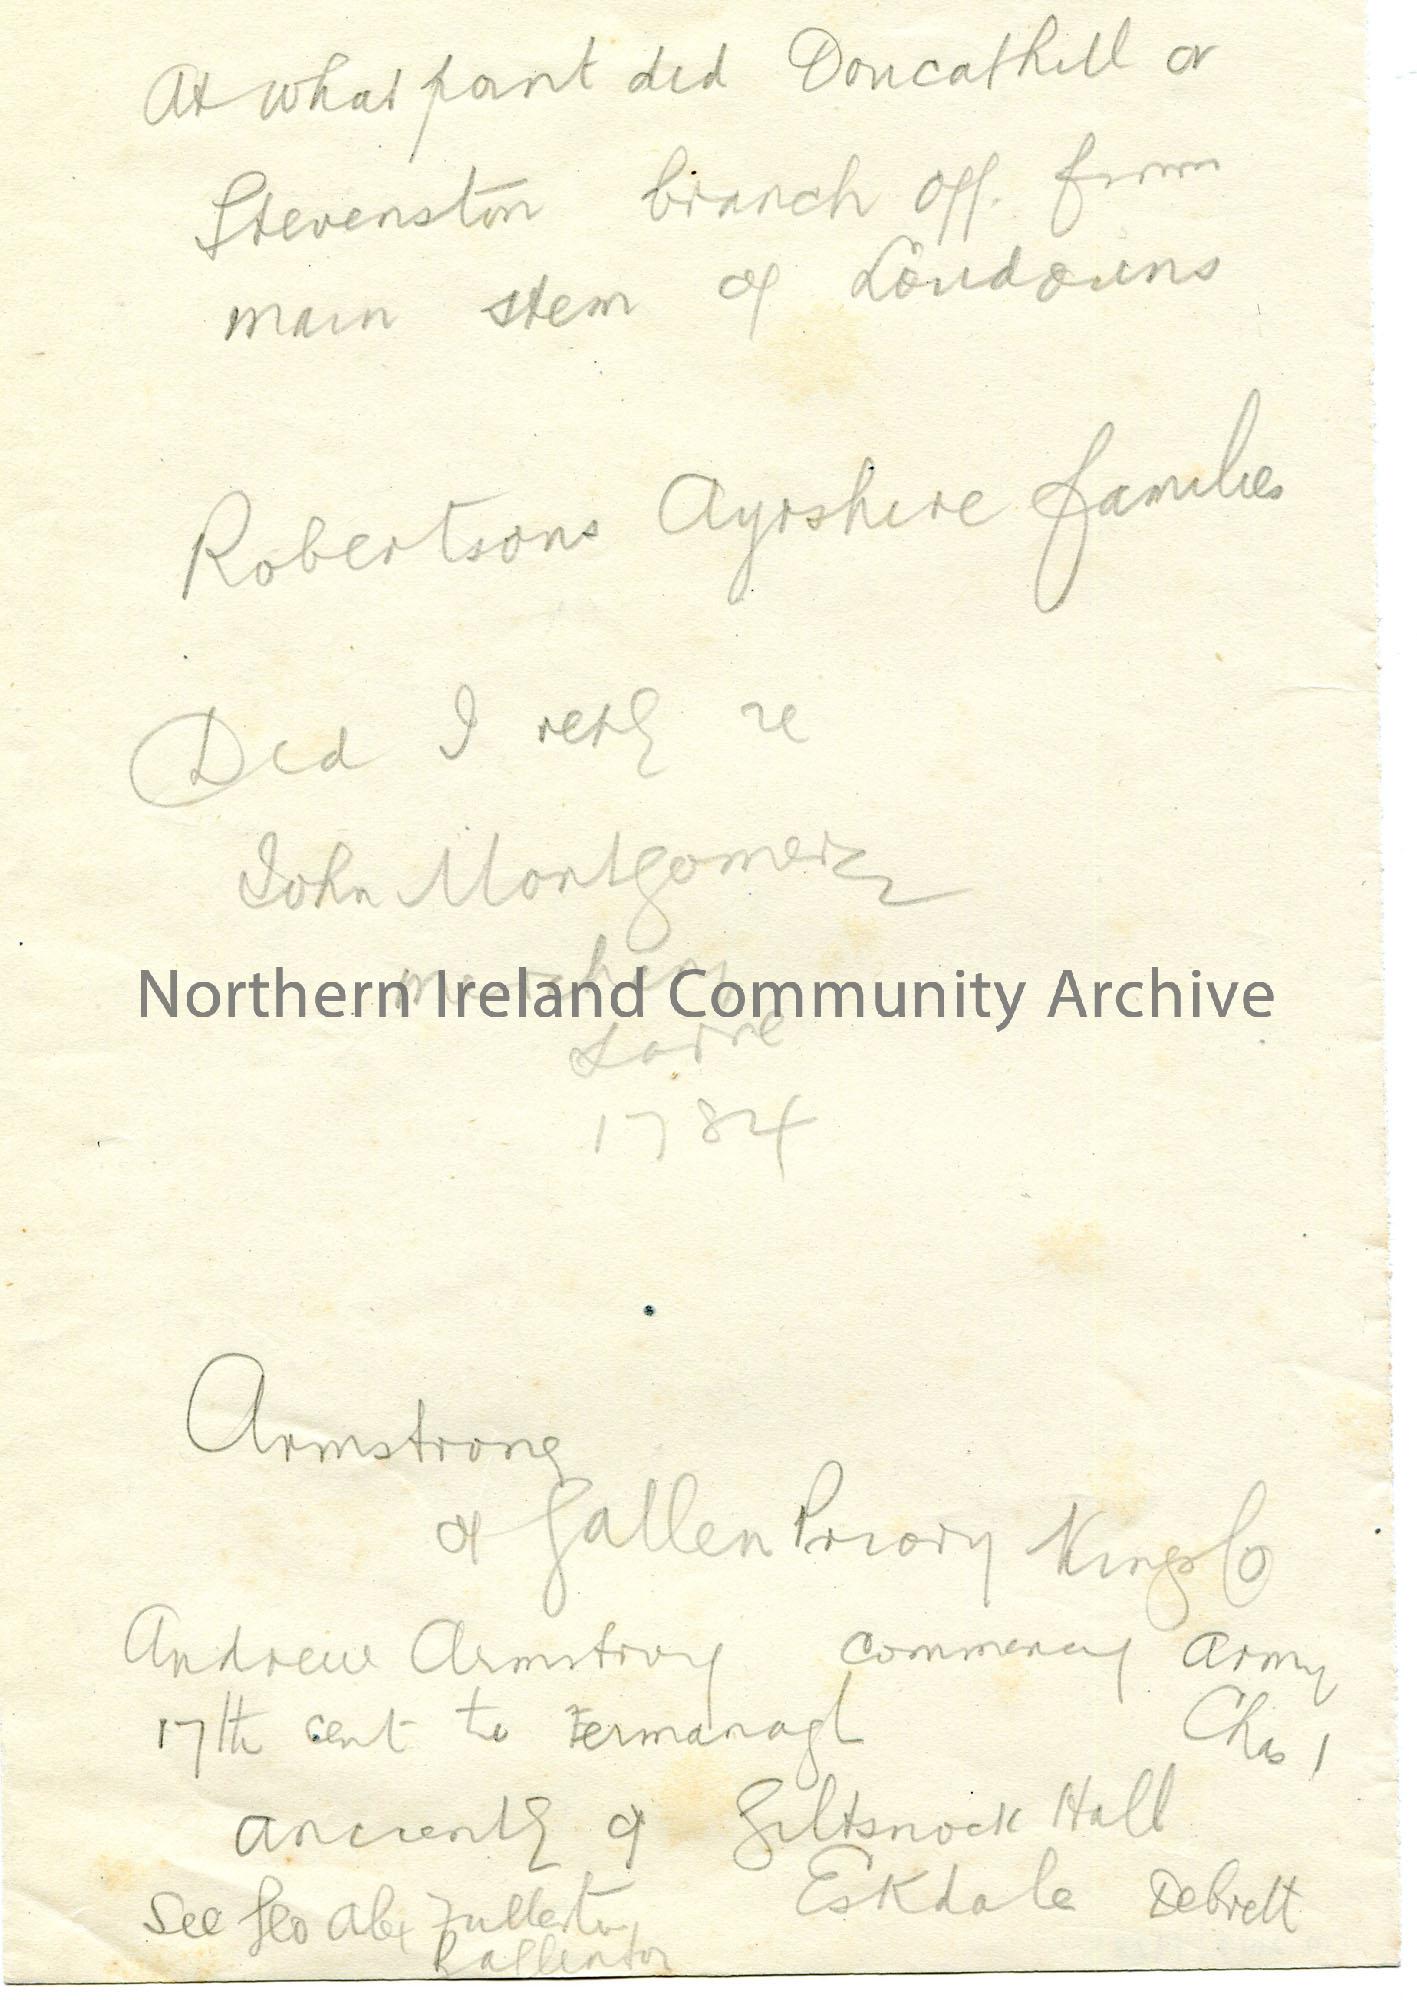 At what point did Doucathill or
Stevenston branch off. from
main stem of Loudouns
Robertsons Ayrshire families
Did I reply re
John Montgomery
merchant
Northern Ireland Community Archive
Larne
1784
Armstrong
of Gallen Priory Kings Co
Andrew Armstrong army
17th cent to Fermanagh Chas 1
anciently of Giltsnock Hall
Eskdale Debrett
See Geo Alex Fullerton
Ballintoy